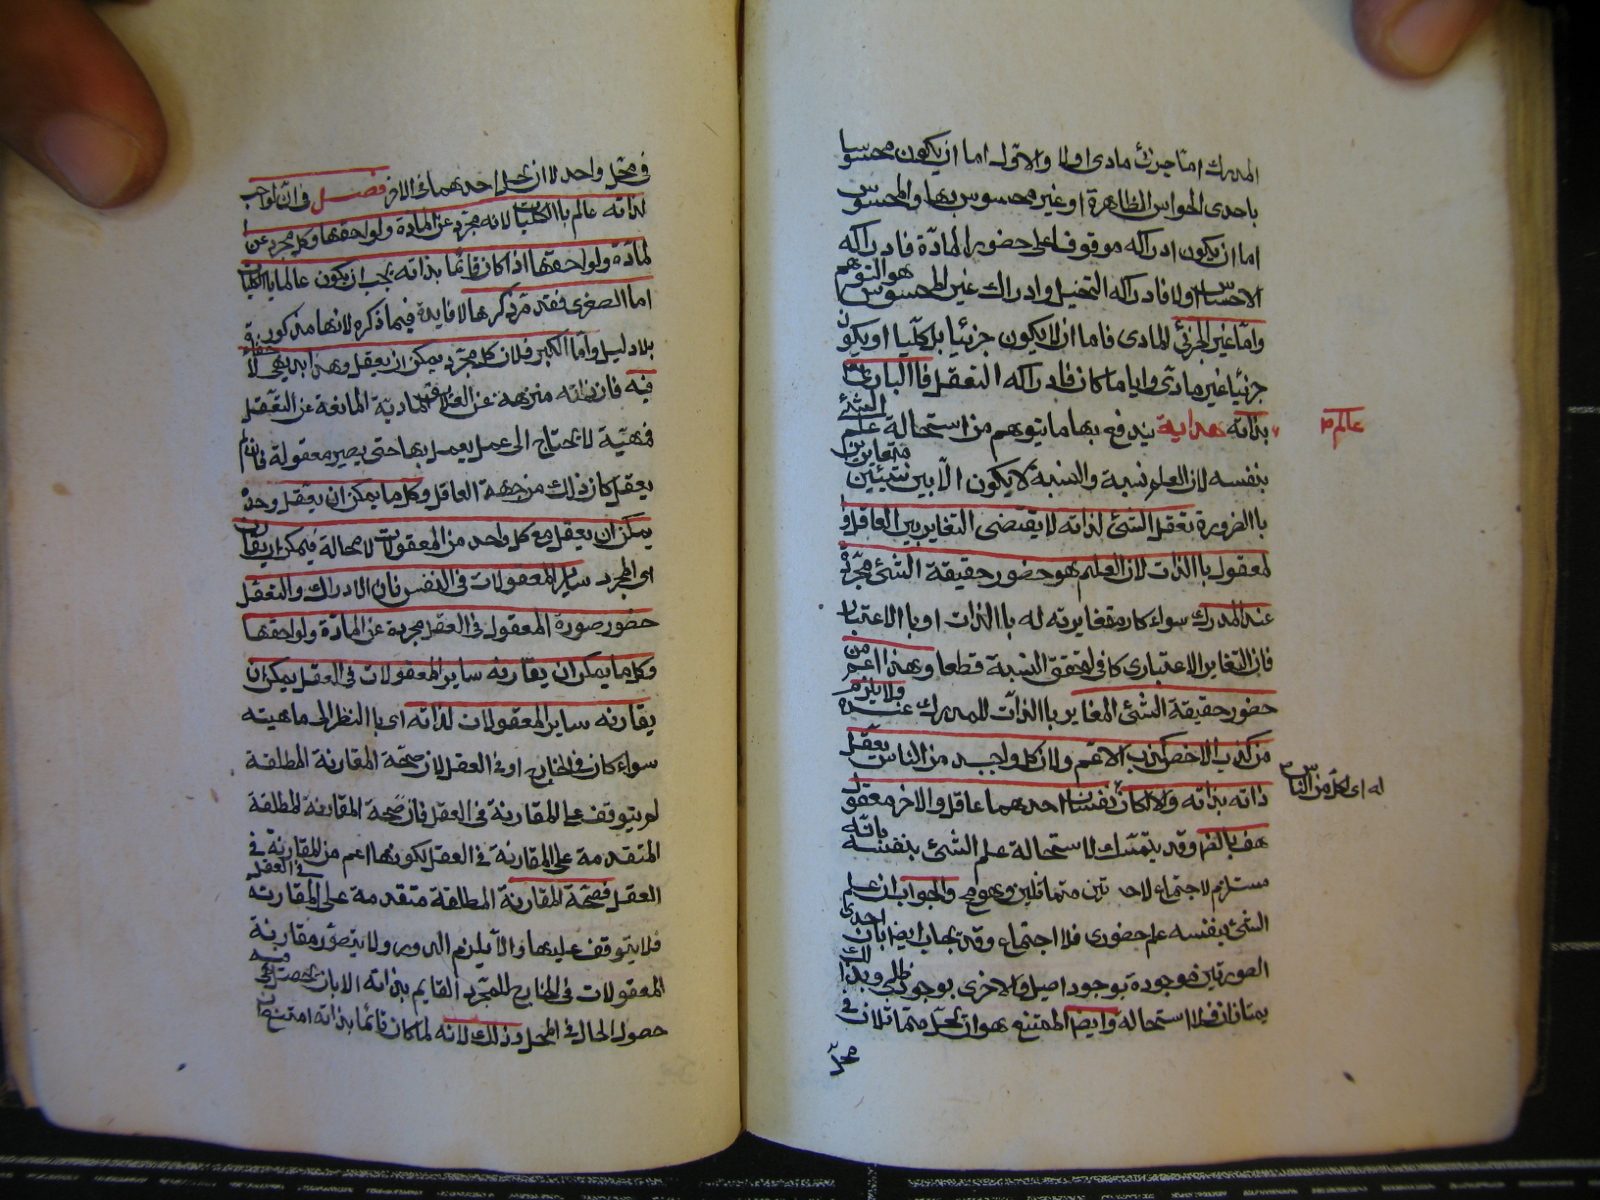 المدرك اما جزئ مادى او لا والاول اما ان يكون محسوسا
باحدى الحواس الظاهرة او غير محسوس بها والمحسوس
اما ان يكون ادراكه موقوفا على حضور المادّة فادراكه
الاحساس اولا فادراكه التخيل وادراك غير المحسوس هو التوهم
واما غير الجزئ المادى فاما ان لا يكون جزئيا بل كلّيا او يكون
جزئيا غير مادّى وايا ما كان فادراكه التعقل فالبارى
عالم
بذاته هداية يندفع بها ما يتوهم من استحالة علم الشئ
بنفسه لان العلم نسبة والنسبة لا يكون الّا بين شيئين متغايرين
باالضرورة تعقل الشئ لذاته لا يقتضى التغاير بين العاقل و
لمعقول باالذات لان العلم هو حضور حقيقة الشئ مجردة
عند المدرك سواء كان مغايرته له باالذات او باالاعتبار
فان التغاير الاعتبارى كافى لتحقق النسبة قطعا وهذا اعم من
حضور حقيقة الشئ المغاير باالذات للمدرك عنده ولا يلزم
من كذب الاخص كذب الاعم ولان كل واحد من الناس يعقل
له اى لكل من الناس
ذاته بذاته والا لكان نفسان احدهما عاقل والاخر معقول
هف باالضر وقد يتمسك لاستحالة علم الشئ بنفسه بانه
مستلزم لاجتماع تين متماثلين وهو مح والجواب ان علم
الشئ بنفسه علم حضورى فلا اجتماع وقد يجاب ايضا بان احدى
الصورتين موجودة بوجود اصيل والاخرى بوجود ظلى وبذلك
يمتازان فلا استحالة وايضا الممتنع هو ان يحل متماثلان فى
محل
فى محل واحد لا ان يحل احدهما فى الاخر فصل فى ان الواجب
لذاته عالم باالكليات لانه مجرد عن المادة ولواحقها وكل مجرد عن
لمادّة ولواحقها اذا كان قائما بذاته يجب ان يكون عالما باالكليات
اما الصغرى فقد مرّ ذكرها لا فايدة فيما ذكره لانها مذكورة
بلا دليل واما الكبر فلان كل مجرّد يمكن ان يعقل وهذا بديهى لا خفاء
فيه فان ذاته منزهة عن العلائق المادية المانعة عن التعقل
فمهيّة لا يحتاج الى عمل يعمل بها حتى يصير معقولة فان لم
يعقل كان ذلك من جهة العاقل وكل ما يمكن ان يعقل وحده
يمكن ان يعقل مع كل واحد من المعقولات لا محالة فيمكن ان يقارن
اى المجرد ساير المعقولات فى النفس فان الادراك والتعقل
حضور صورة المعقول فى العقل مجردة عن المادّة ولواحقها
وكل ما يمكن ان يقارنه ساير المعقولات فى العقل يمكن ان
يقارنه ساير المعقولات لذاته اى باالنظر الى ماهيته
سواء كان فى الخارج او فى العقل لان صحّة المقارنة المطلقة
لم يتوقف على المقارنة فى العقل فان صحة المقارنة المطلقة
المتقدمة على المقارنة فى العقل لكونها اعم من المقارنة فى
العقل فصحّة المقارنة المطلقة متقدمة على المقارنة فى العقل
فلا يتوقف عليها والا يلزم الدور ولا يتصوّر مقارنة
المعقولات فى الخارج للمجرّد القايم بذاته الا بان يحصل فيه
حصول الحال فى المحل وذلك لانه لما كان قائما بذاته امتنع ان